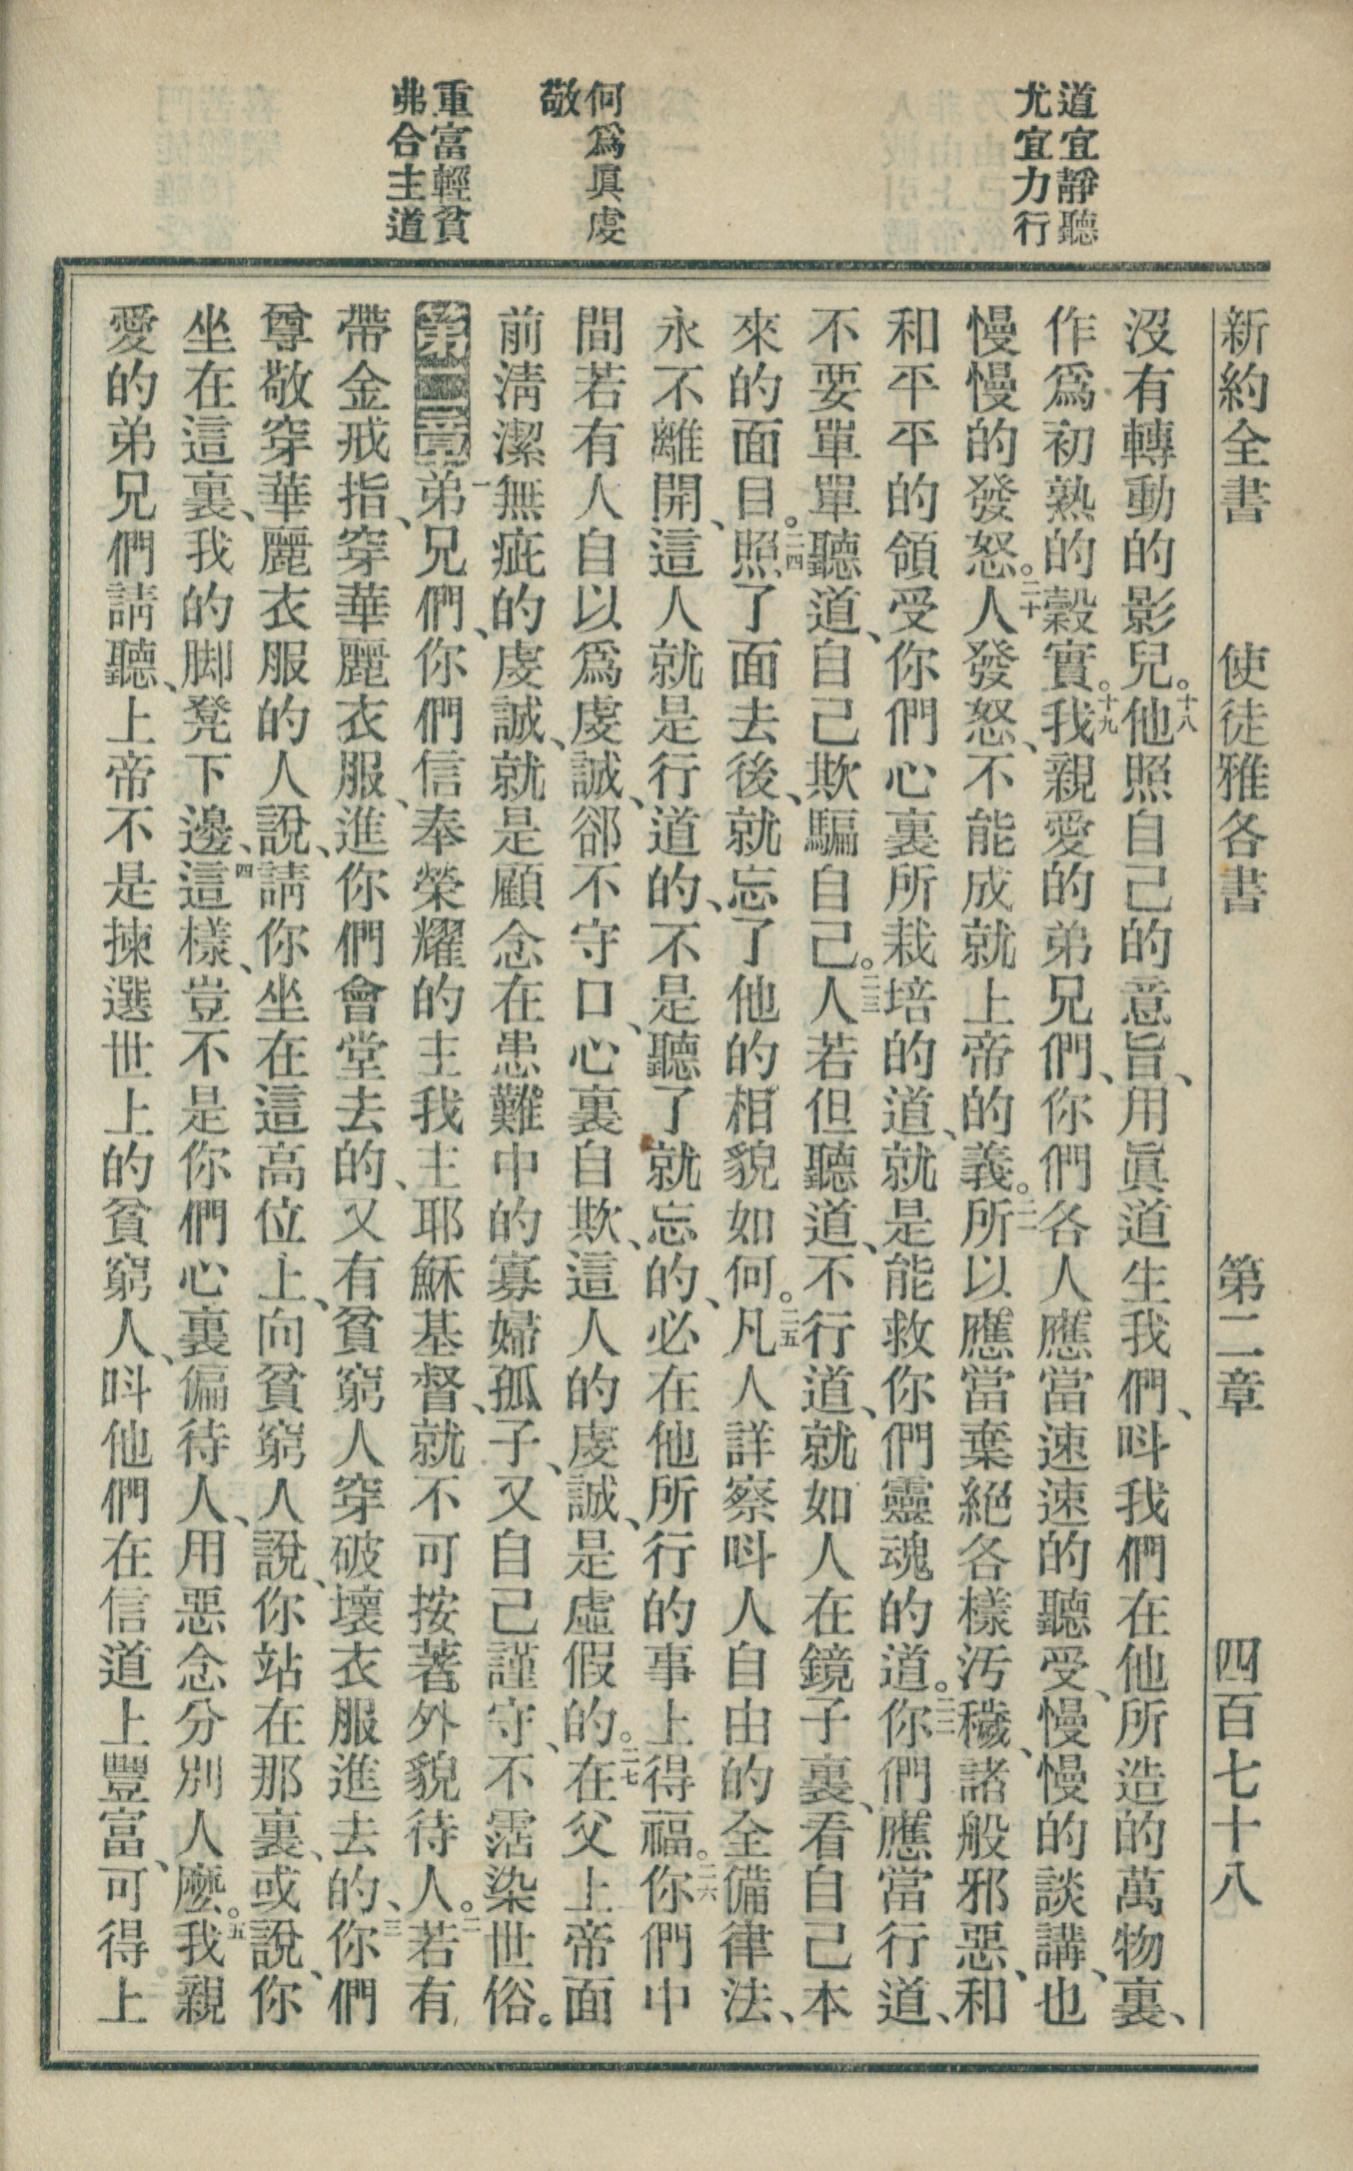 道宜靜聽
尤宜力行
何爲眞虔
敬
重富輕貧
弗合主道
新約全書 使徒雅各書 第二章 四百七十八
沒有轉動的影兒。十八他照自己的意旨、用眞道生我們、呌我們在他所造的萬物裏、
作爲初熟的穀實。十九我親愛的弟兄們、你們各人應當速速的聽受、慢慢的談講、也
慢慢的發怒。二十人發怒、不能成就上帝的義。二一所以應當棄絕各樣汚穢、諸般邪惡、和
和平平的領受你們心裏所栽培的道、就是能救你們靈魂的道。二二你們應當行道、
不要單單聽道、自己欺騙自己。二三人若但聽道、不行道、就如人在鏡子裏、看自己本
來的面目。二四照了面去後、就忘了他的相貌如何。二五凡人詳察呌人自由的全備律法、
永不離開、這人就是行道的、不是聽了就忘的、必在他所行的事上得福。二六你們中
間若有人自以爲虔誠、卻不守口、心裏自欺、這人的虔誠、是虛假的。二七在父上帝面
前淸潔無疵的虔誠、就是顧念在患難中的寡婦孤子、又自己謹守、不霑染世俗。
第二章一弟兄們、你們信奉榮耀的主我主耶穌基督、就不可按著外貌待人。二若有
帶金戒指、穿華麗衣服、進你們會堂去的、又有貧窮人穿破壞衣服進去的、三你們
尊敬穿華麗衣服的人說、請你坐在這高位上、向貧窮人說、你站在那裏、或說、你
坐在這裏、我的脚凳下邊、四這樣、豈不是你們心裏偏待人、用惡念分別人麽。五我親
愛的弟兄們請聽、上帝不是揀選世上的貧窮人、呌他們在信道上豐富、可得上